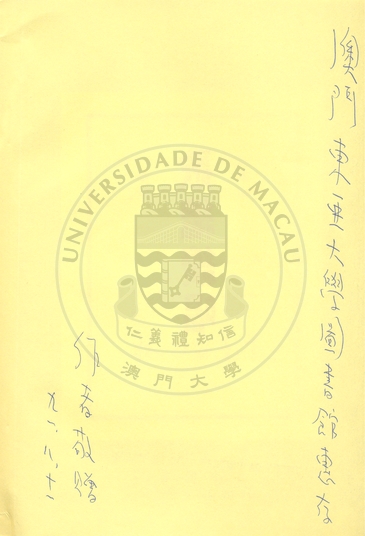 澳門東亞大學圖書館惠存
作者敬贈
UNIVERSIDADE DE MACAU
仁義禮知信
澳門大學